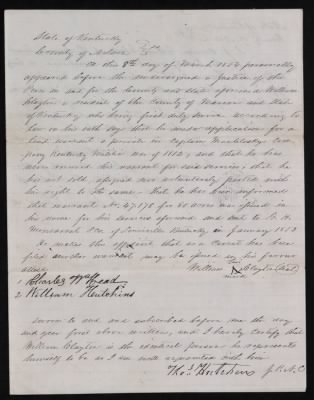 State of Kentucky
County of Nelson
On this 8th day of March 1853 personally
appeared before the undersigned a Justice of the
Peace in and for the County and state aforesaid William
Clayton a resident of the County of and State
of Kentucky who being first duly sworn according to
law on his oath says that he made application for a
land warrant a private in Captain
Company Kentucky Militia war of 1812, and that he has
never received his warrant for said service, that he
has not sold, assigned nor voluntarily parted with
his right to the same. That he has been informed
that warrant No. 47.178 for 80 acres was issued in
his name for his services aforesaid and sent to
of Kentucky in January 1853
He makes this affidavit that as a caveat has been
filed another warrant may be issued in his favour
attest
William Clayton (Seal)
mark
1 Charles
2 William Hutchins
Sworn to and and subscribed before me the day
and year first above written, and I hereby certify that
William Clayton is the identical person he represents
himself to be as I am well acquainted with him
Thos Hutchins J.P.N.C.